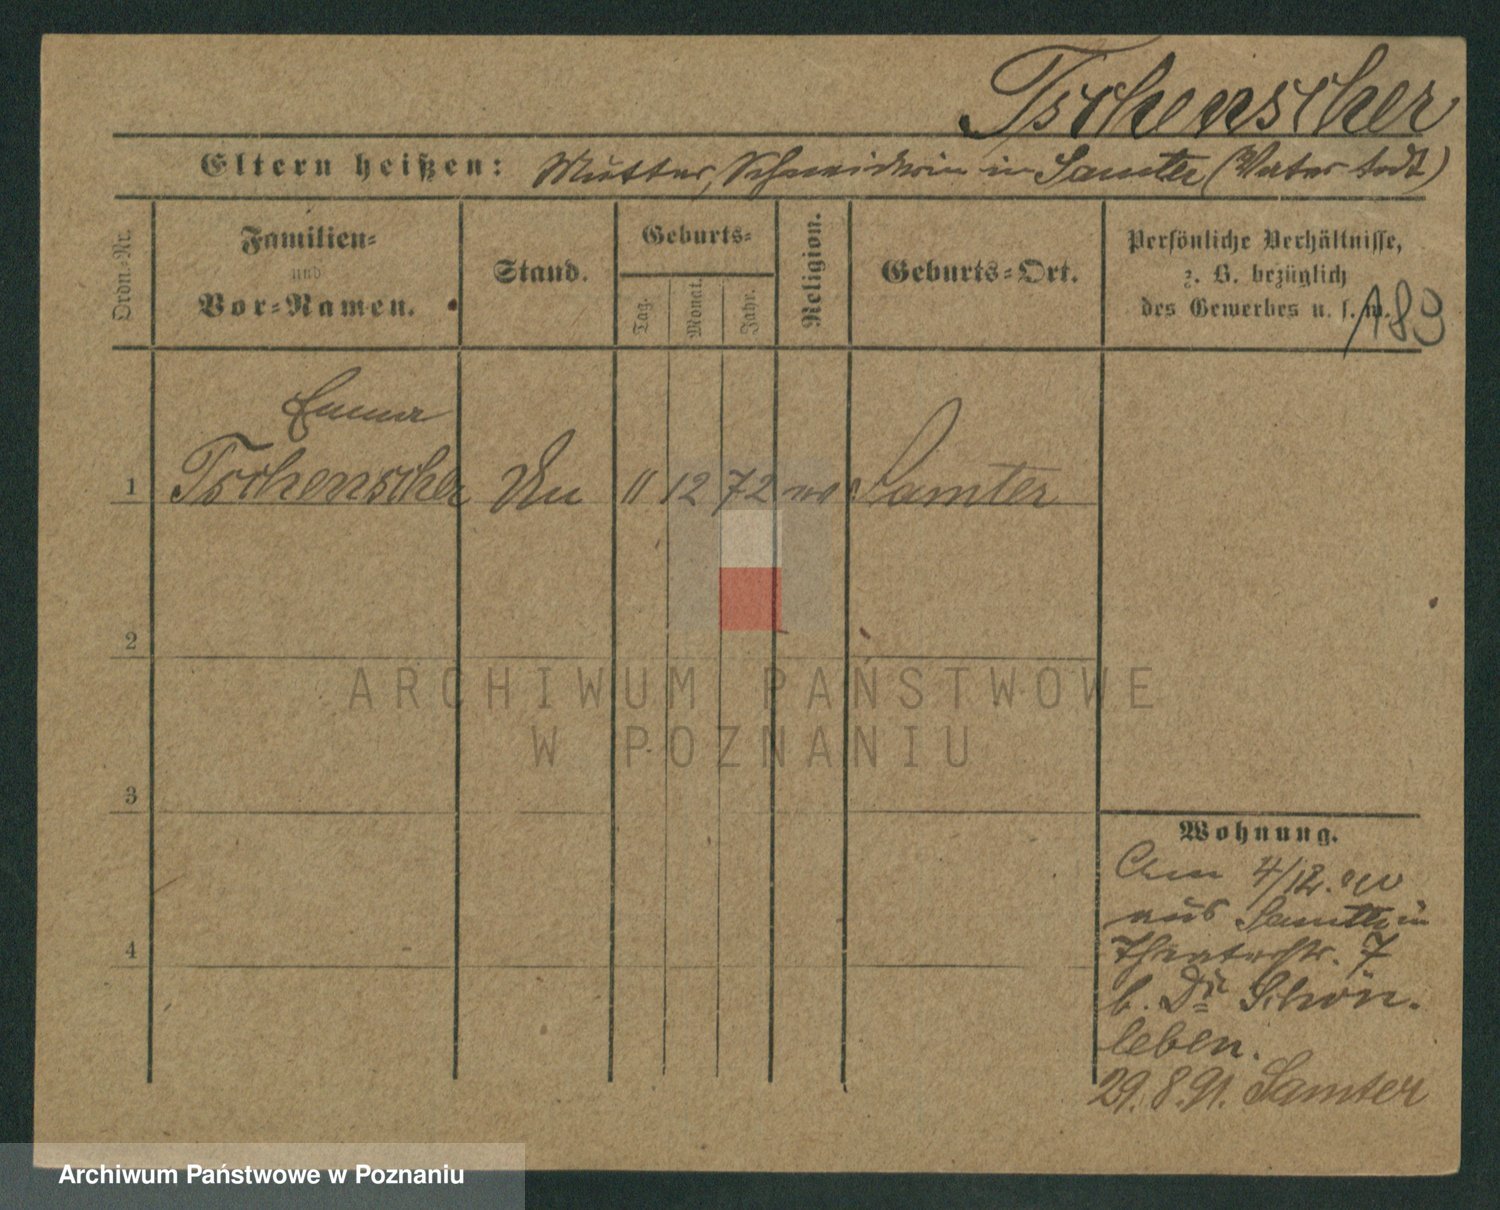 Tschenscher
Eltern heißen: Mutter, Schneiderin in Samter (Vater todt)
Ordn.-Nr.
Familien-
und
Vor-Namen.
Stand.
Geburts-
Tag.
Monat.
Jahr.
Religion.
Geburts-Ort.
Persönliche Verhältnisse,
z. B. bezüglich
des Gewerbes u. s. w.
189
Emma
1 Tschenscher 11 12 72 ev Samter
2
3
4
ARCHIWUM PAŃSTWOWE
W POZNANIU
Wohnung.
Am 4/12. 90
aus Samter in
Theaterstr. 7
b. Dr Schön-
leben.
29. 8. 91. Samter
Archiwum Państwowe w Poznaniu